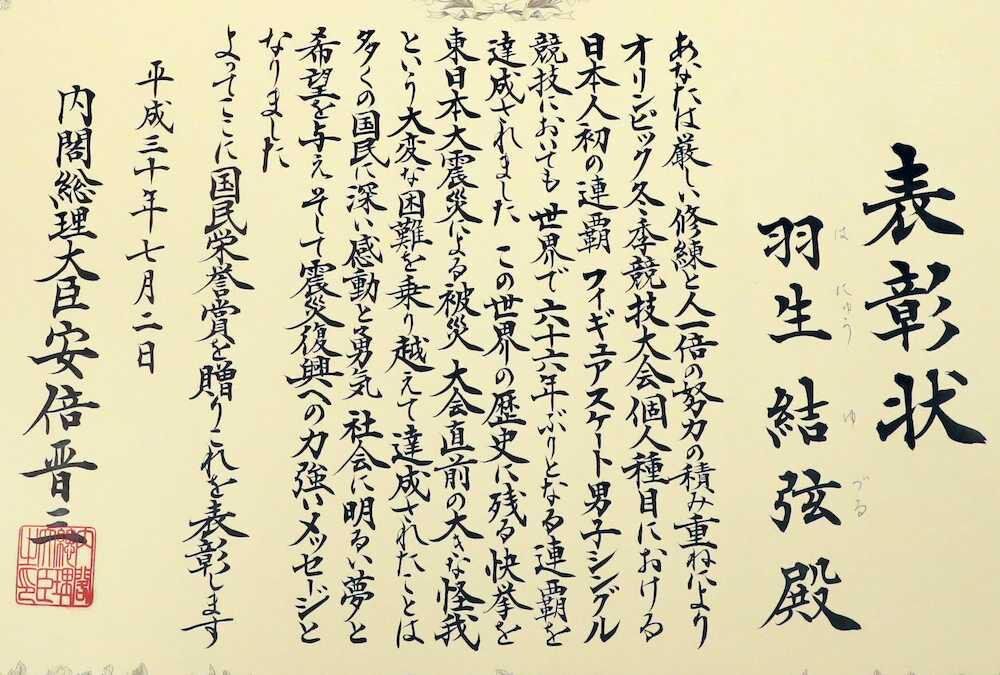 表彰状
羽生 結弦 殿
は にゅう ゆ づる
あなたは厳しい修練と人一倍の努力の積み重ねにより
オリンピック冬季競技大会個人種目における
日本人初の連覇 フィギュアスケート男子シングル
競技においても 世界で六十六年ぶりとなる連覇を
達成されました この世界の歴史に残る快挙を
東日本大震災による被災 大会直前の大きな怪我
という大変な困難を乗り越えて達成されたことは
多くの国民に深い感動と勇気 社会に明るい夢と
希望を与え そして震災復興への力強いメッセージと
なりました
よってここに国民栄誉賞を贈りこれを表彰します
平成三十年七月二日
内閣総理大臣 安倍晋三
内閣総理大臣之印